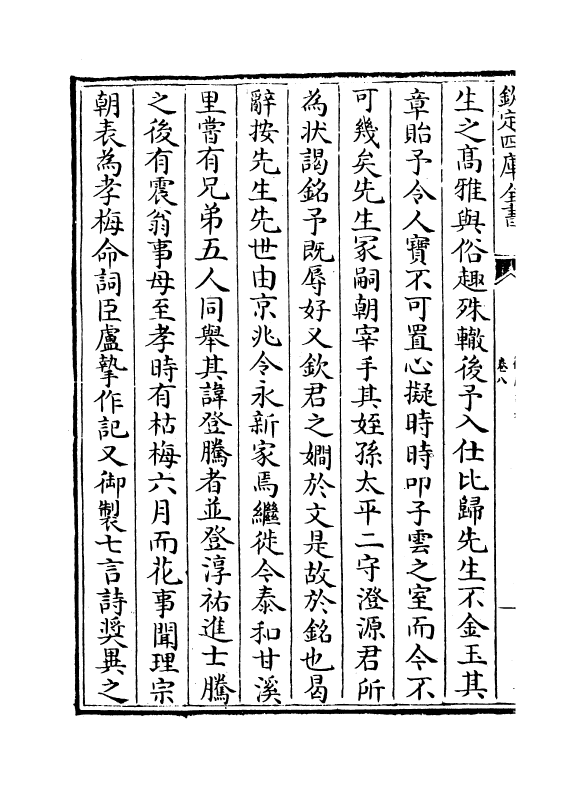 欽定四庫全書
卷八
生之髙雅與俗趣殊轍後予入仕比歸先生不金玉其
章貽予令人寳不可置心擬時時叩子雲之室而今不
可幾矣先生冢嗣朝宰手其姪孫太平二守澄源君所
為狀謁銘予既辱好又欽君之嫺於文是故於銘也曷
辭按先生先世由京兆令永新家焉繼徙今泰和甘溪
里嘗有兄弟五人同舉其諱登騰者並登淳祐進士騰
之後有震翁事母至孝時有枯梅六月而花事聞理宗
朝表為孝梅命詞臣盧摯作記又御製七言詩奬異之